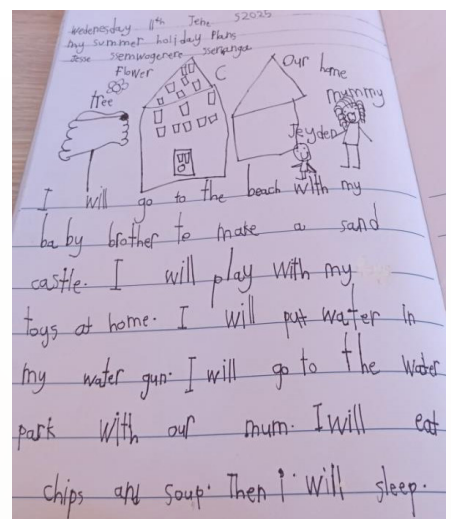 Wedenesday 11th Jene 52025
my summer holiday plans
Jesse ssemwogerere sserunga
Flower
C
Our home
tree
mummy
Jeyden
I will go to the beach with my
baby brother to make a sand
castle. I will play with my
toys at home. I will put water in
my water gun. I will go to the water
park with our mum. I will eat
chips and soup. Then i will sleep.